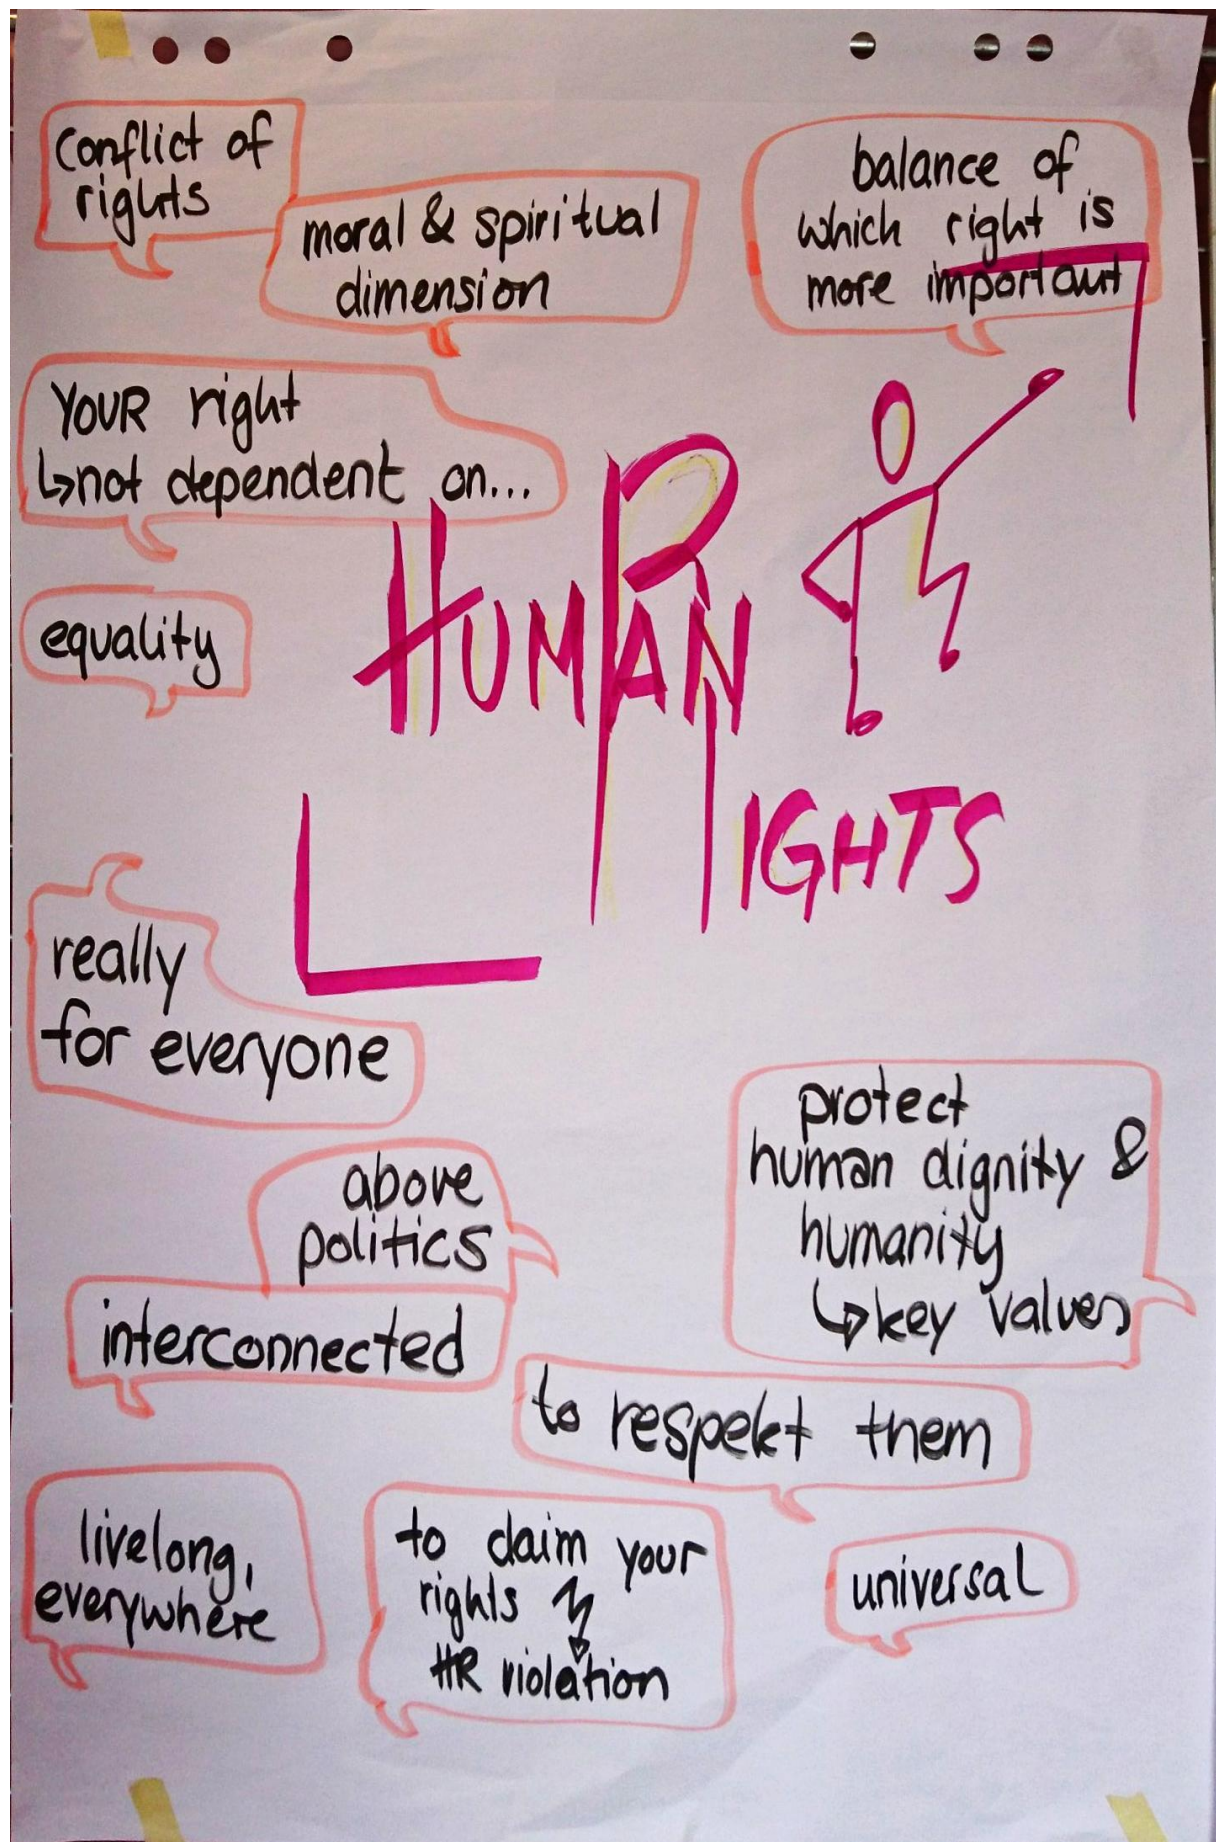 conflict of
rights
moral & spiritual
dimension
balance of
which right is
more important
YOUR right
↳not dependent on...
HUMAN
RIGHTS
equality
really
for everyone
above
politics
interconnected
protect
human dignity &
humanity
↳key values
to respekt them
livelong,
everywhere
to claim your
rights
HR violation
universal